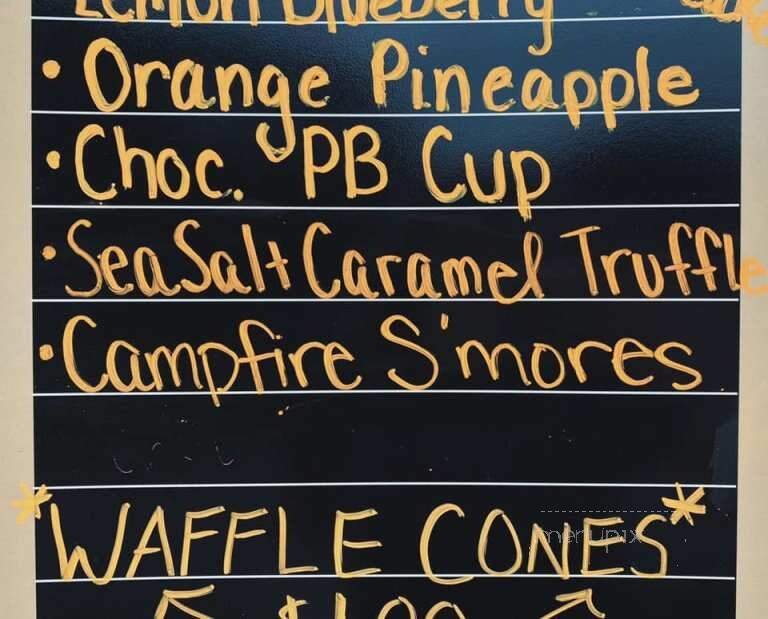 Lemon Blueberry
• Orange Pineapple
• Choc. PB Cup
• Sea Salt Caramel Truffle
• Campfire S'mores
*WAFFLE CONES*
menupix
$1.00